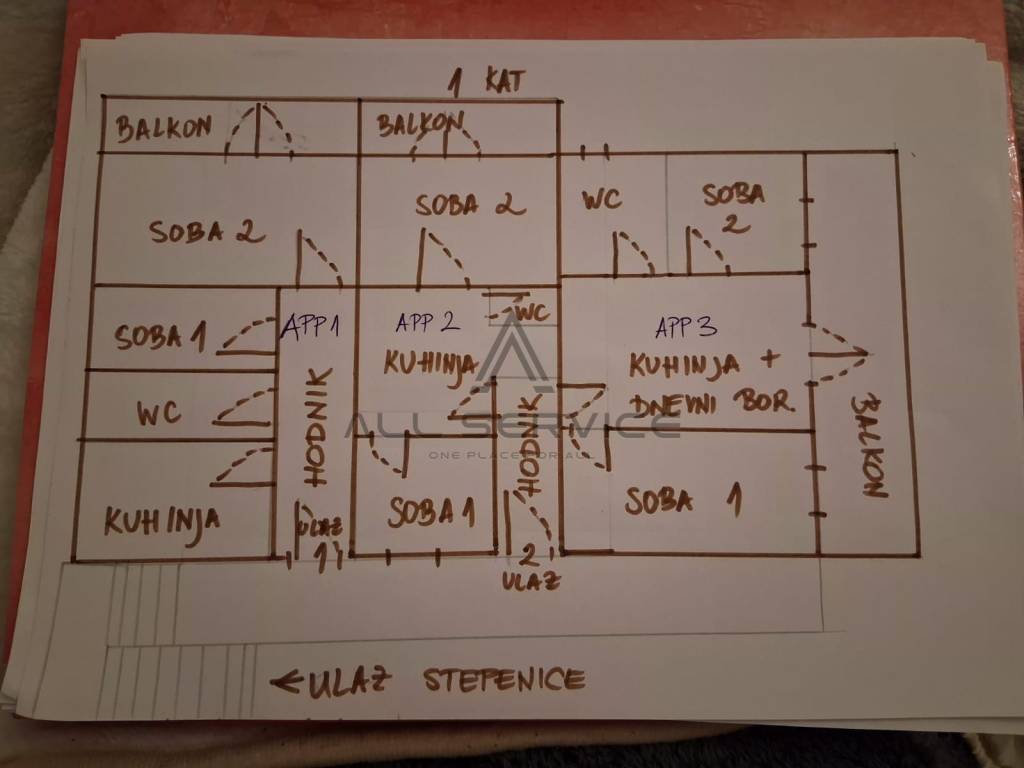 1 KAT
BALKON
BALKON
SOBA 2
SOBA 2
WC
SOBA
2
SOBA 1
APP 1
APP 2
WC
APP 3
KUHINJA
KUHINJA +
DNEVNI BOR.
WC
HODNIK
HODNIK
BALKON
ALL SERVICE
ONE PLACE FOR ALL
KUHINJA
ULAZ
1
SOBA 1
SOBA 1
2
ULAZ
←ULAZ STEPENICE